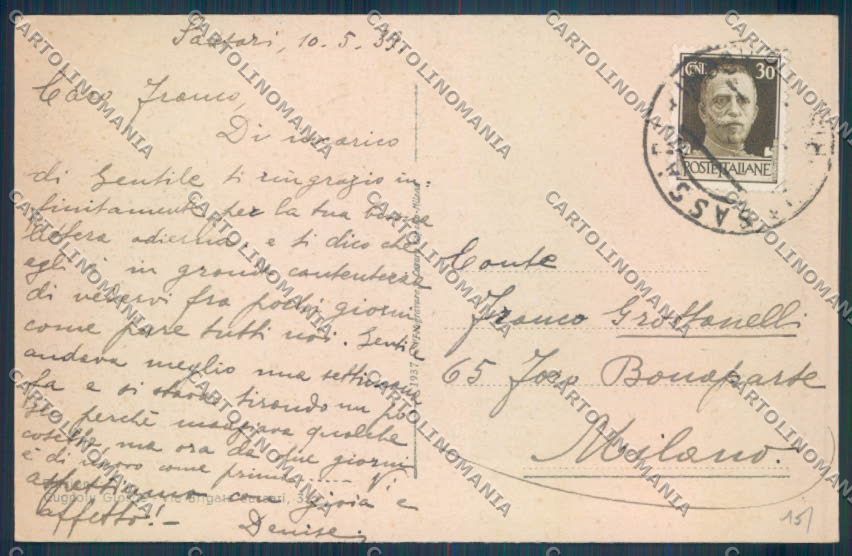 Sassari, 10.5.39
Caro Franco,
Di incarico
di Gentile ti ringrazio in=
finitamente per la tua buona
lettera odierna, e ti dico che
egli è in grande contentezza
di vedervi fra pochi giorni
come pure tutti noi. Gentile
andava meglio una settimana
fa e si stava tirando un po'
su perchè mangiava qualche
cosetta, ma ora da due giorni
è di nuovo come prima..... Vi
aspettiamo con gioia e
affetto! -
Denise
CENT. 30
POSTE ITALIANE
SASSARI
Conte
Franco Grottanelli
65 Foro Bonaparte
Milano.
1937
Brigata Sassari, 3
15/
CARTOLINOMANIA